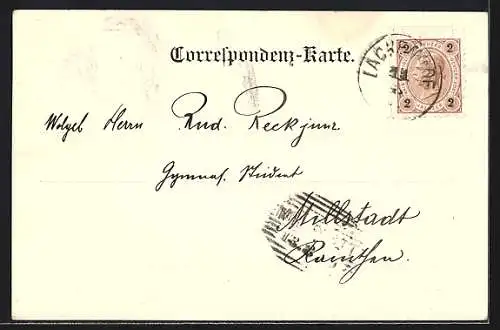 Correspondenz-Karte.
2 2
2 2
Wolgeb Herrn Rud. Reckjunz
Gymnas. Student
Millstadt
Kärnthen.